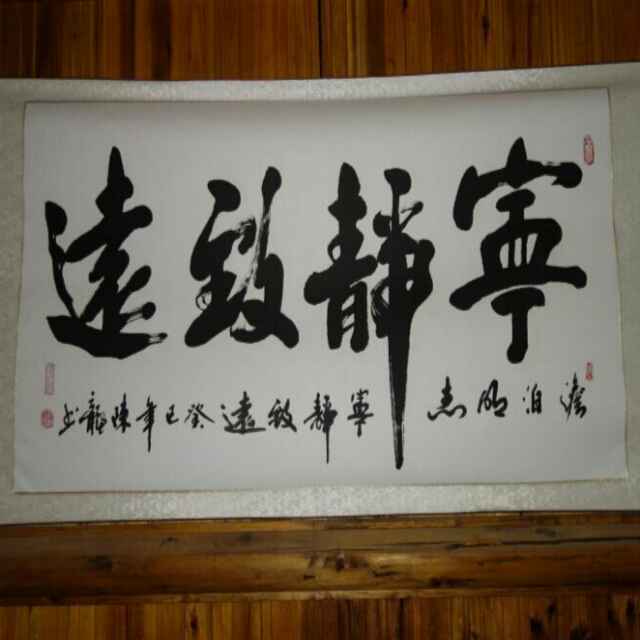 寧靜致遠
澹泊明志 寧靜致遠 癸巳年 陳龍書